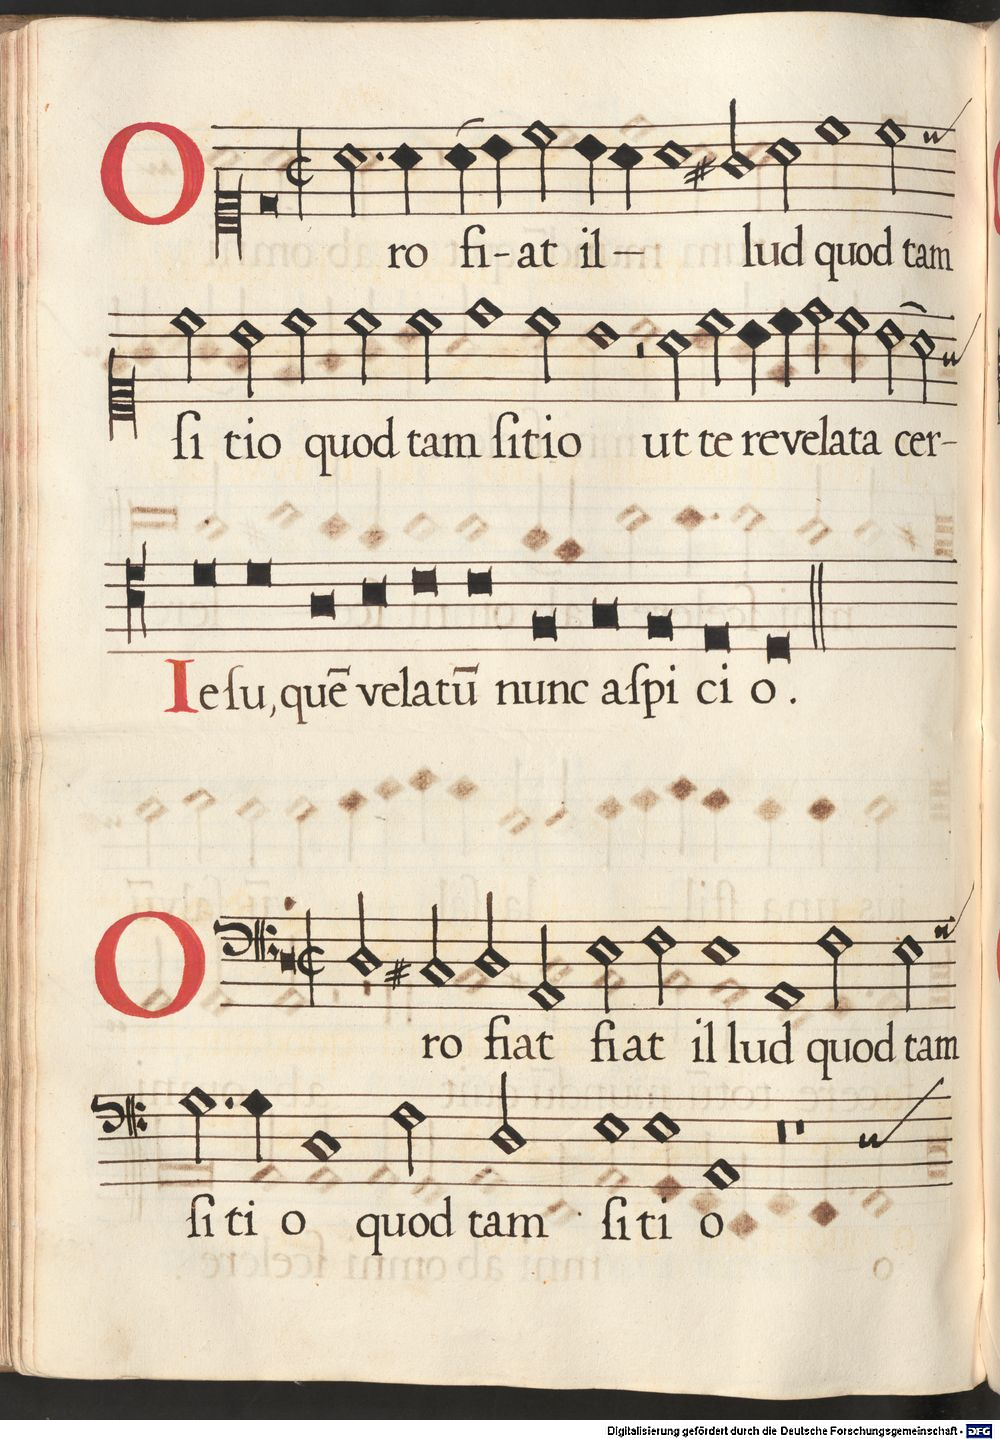 O ro fi-at il- lud quod tam
ſi tio quod tam ſitio ut te revelata cer-
Ieſu, quē velatū nunc aſpi ci o.
O ro fiat fiat illud quod tam
ſi ti o quod tam ſi ti o
Digitalisierung gefördert durch die Deutsche Forschungsgemeinschaft - DFG